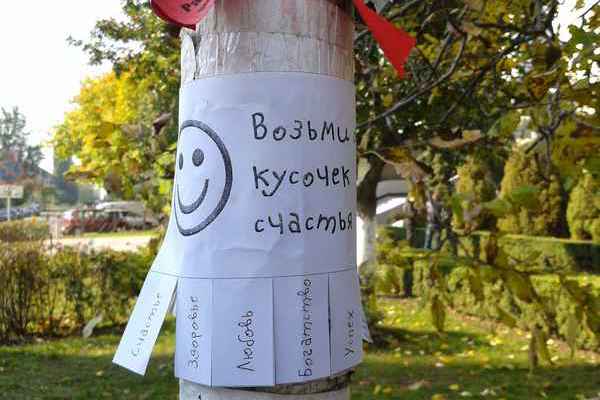 Возьми
кусочек
счастья
Счастье
Здоровье
Любовь
Богатство
Успех